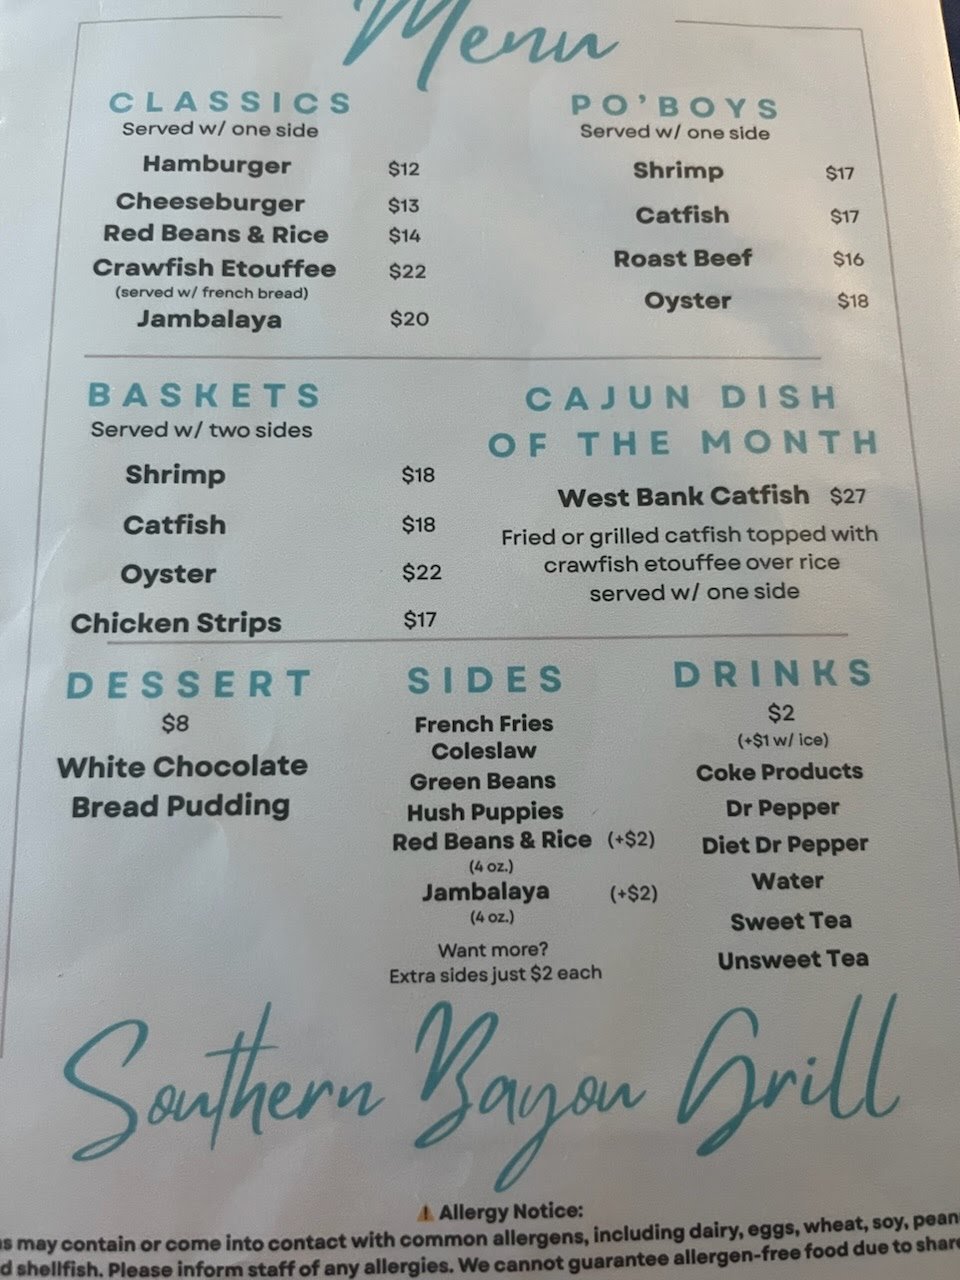 Menu
CLASSICS
Served w/ one side
Hamburger $12
Cheeseburger $13
Red Beans & Rice $14
Crawfish Etouffee $22
(served w/ french bread)
Jambalaya $20
PO'BOYS
Served w/ one side
Shrimp $17
Catfish $17
Roast Beef $16
Oyster $18
BASKETS
Served w/ two sides
Shrimp $18
Catfish $18
Oyster $22
Chicken Strips $17
CAJUN DISH
OF THE MONTH
West Bank Catfish $27
Fried or grilled catfish topped with
crawfish etouffee over rice
served w/ one side
DESSERT
$8
White Chocolate
Bread Pudding
SIDES
French Fries
Coleslaw
Green Beans
Hush Puppies
Red Beans & Rice (+$2)
(4 oz.)
Jambalaya (+$2)
(4 oz.)
Want more?
Extra sides just $2 each
DRINKS
$2
(+$1 w/ ice)
Coke Products
Dr Pepper
Diet Dr Pepper
Water
Sweet Tea
Unsweet Tea
Southern Bayou Grill
⚠ Allergy Notice:
may contain or come into contact with common allergens, including dairy, eggs, wheat, soy,
shellfish. Please inform staff of any allergies. We cannot guarantee allergen-free food due to